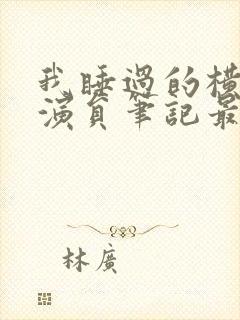 我睡過的橫
演員筆記最
林廣